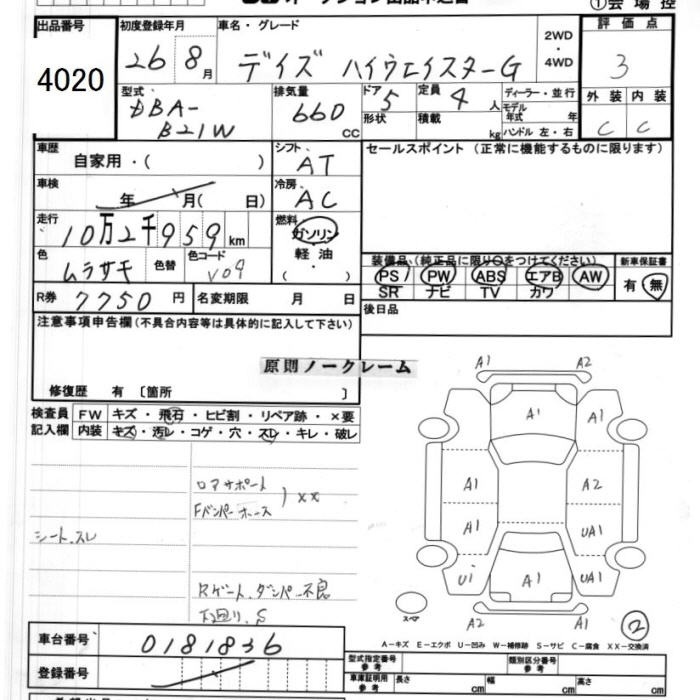 ①会場控
出品番号 初度登録年月 車名・グレード 評価点
4020 26 8月 デイズ ハイウェイスターG 2WD・4WD 3
型式 DBA-B21W 排気量 660 CC ドア 5 形状 定員 4人 積載 kg ディーラー・並行 モデル年式 年式 ハンドル 左・右
外装 内装
C C
車歴 自家用・( ) シフト AT セールスポイント (正常に機能するものに限ります)
車検 年 月( 日) 冷房 AC
走行 10万2千959km 燃料 ガソリン 軽油 ・( )
色 ムラサキ 色替 色コード V09
装備品 (純正品に限り○をつけてください) 新車保証書
PS PW ABS エアB AW 有・無
SR ナビ TV カワ
R券 7750円 名変期限 月 日 後日品
注意事項申告欄 (不具合内容等は具体的に記入して下さい)
原則ノークレーム
修復歴 有 〔箇所 〕
検査員 FW キズ・飛石・ヒビ割・リペア跡・×要
記入欄 内装 キズ・汚レ・コゲ・穴・スレ・キレ・破レ
ロアサポート
Fバンパーホース ) ××
シート、スレ
Rゲート、ダンパー不良
下回リ、S
A1 A2
A1 A1
A1 A2
A1 UA1
U1 A1 UA1
A2 A1
スペア
②
A-キズ E-エクボ U-凹み W-補修跡 S-サビ C-腐食 XX-交換済
車台番号 0181836
登録番号
型式指定番号 参考 類別区分番号 参考
車庫証明用 参考 長さ cm 幅 cm 高さ cm